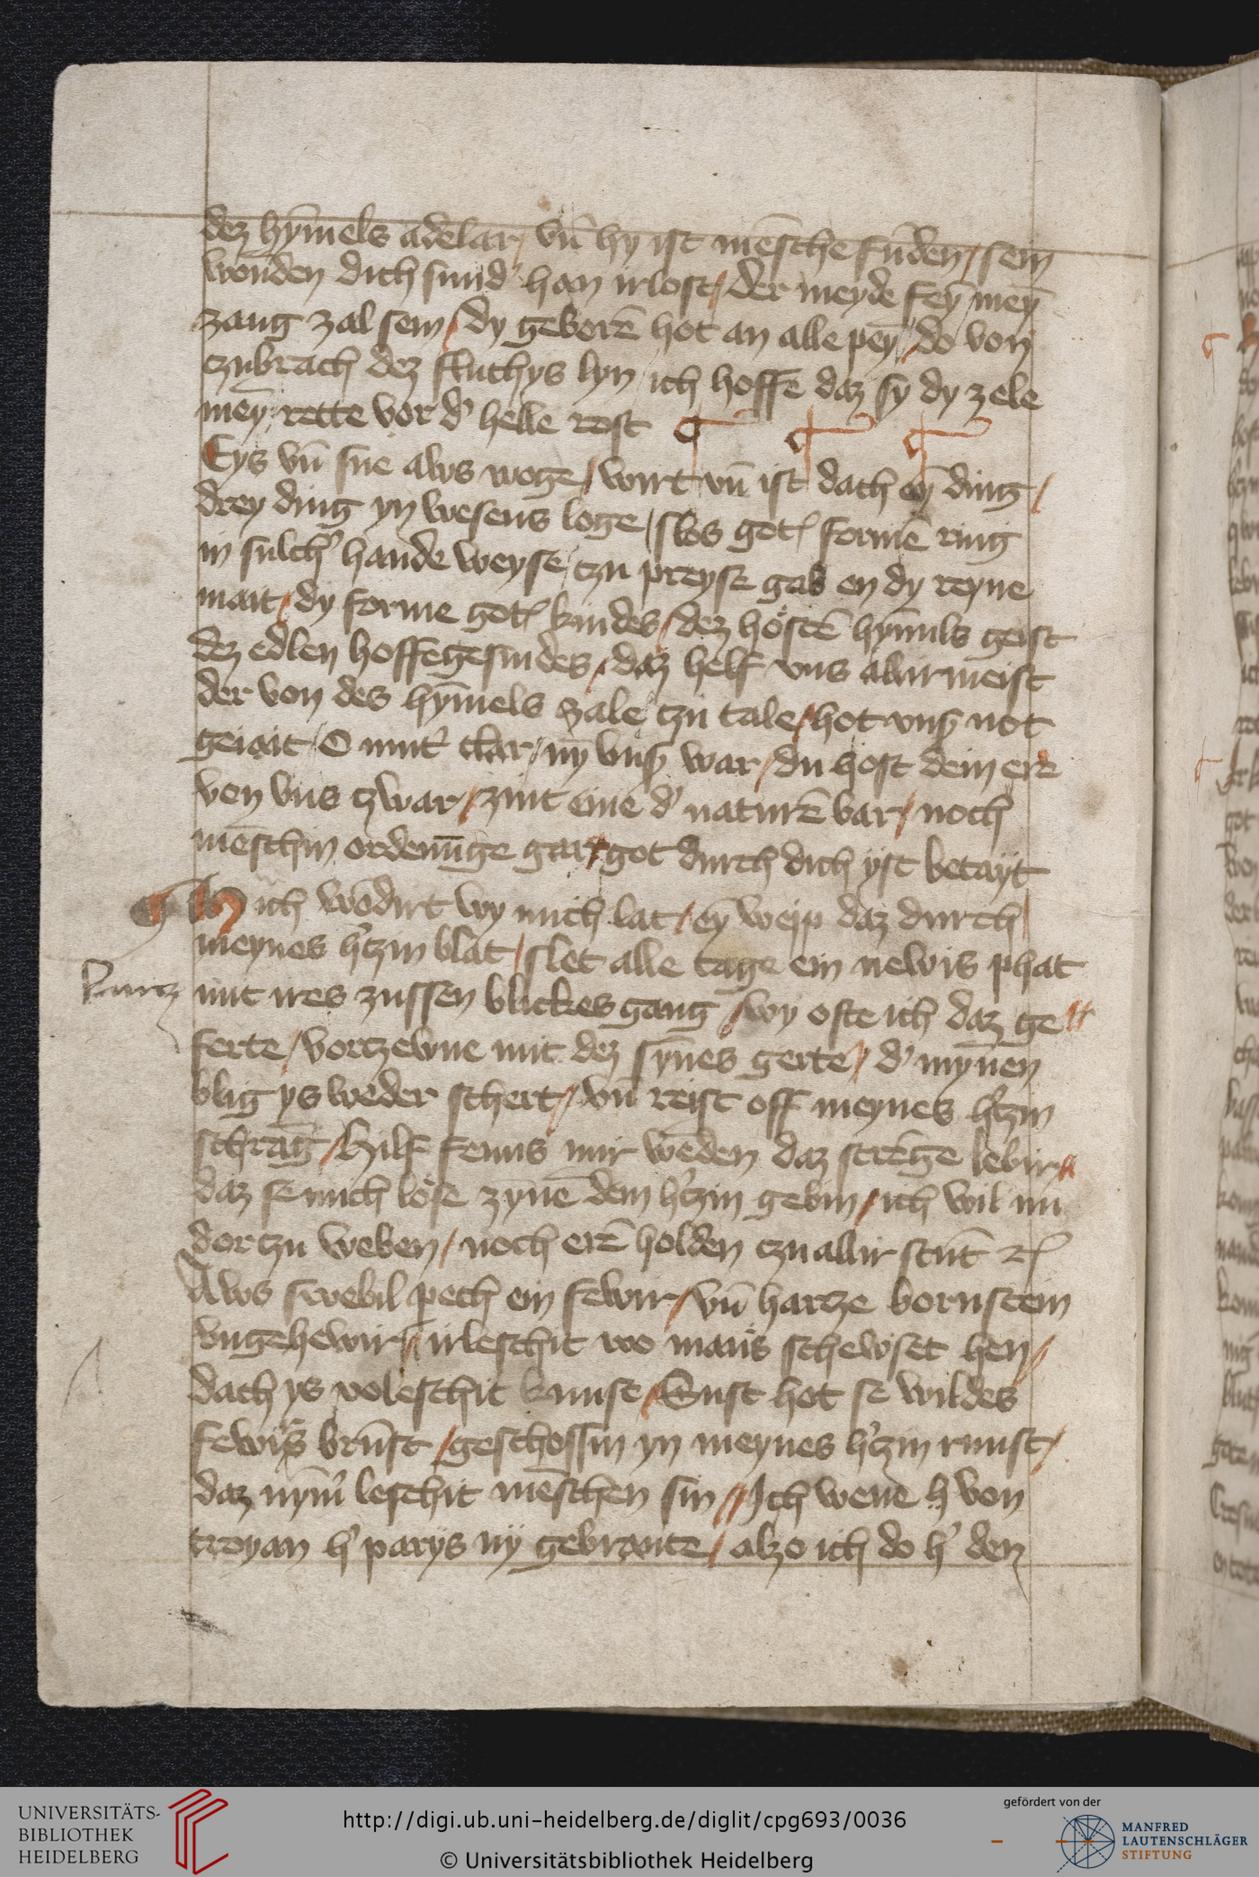 dez hȳmels adelar / vn̄ hy ist mēsche fūden / sein
wonden dich sund' han irlost / der meyde seȳ meȳ
zang zal sein / dy geborē hot an alle peȳ / do von
czubrach dez fluchys lyn / ich hoffe daz sy dy zele
meȳ rette vor d' helle rost
Eys vn̄ sne alvs woge / wirt vn̄ ist dach eȳ ding /
drey ding yn wesens loge / slos got forme ring
in sulch' hande weyse / czu preyse gab en dy reyne
mait / dy forme got kindes / dez höstē hȳmils geist
dez edlen hoffegesindes / daz helf vns allirmeist
der von des hȳmels zale czu tale / hot vnß not
geiait / O mut' clar / nȳ vnß war / du host dein ere
von vns czwar / zint eine d' naturē var / noch
mēschin ordenūge gar / got durch dich yst betayt
ich wōdirt wy mich lat / eȳ weip daz durch
meynes h'czin blat / slet alle tage ein newis phat
mit ires zussen blickes gang / wy ofte ich daz ge
ferte / vorczewne mit dez sȳnes gerte / d' mynen
blig ys weder schert / vn̄ reist off meynes h'czin
schrag / Hilf fenus mir weden daz strēge lebin
daz se mich lose zyne dem h'czin gebin / ich wil im
dorczu weben / noch erē holden czu allir stūt
Alvs swebil pech ein fewir / vn̄ harcze bornstein
vngehewir / irleschit wo man's schewset hen /
dach ys voleschit kunst / Sust hot se wildes
fewirs brūst / geschossin yn meynes h'czin runst /
daz nȳm' leschit mēschen sin / Ich wene h' von
troyan h' parys ny gebrante / alzo ich do h' den
http://digi.ub.uni-heidelberg.de/diglit/cpg693/0036
© Universitätsbibliothek Heidelberg
UNIVERSITÄTS-
BIBLIOTHEK
HEIDELBERG
gefördert von der
MANFRED
LAUTENSCHLÄGER
STIFTUNG